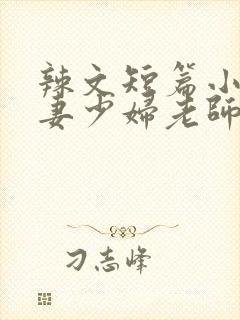 辣文短篇小
妻少婦老師
刁志峰